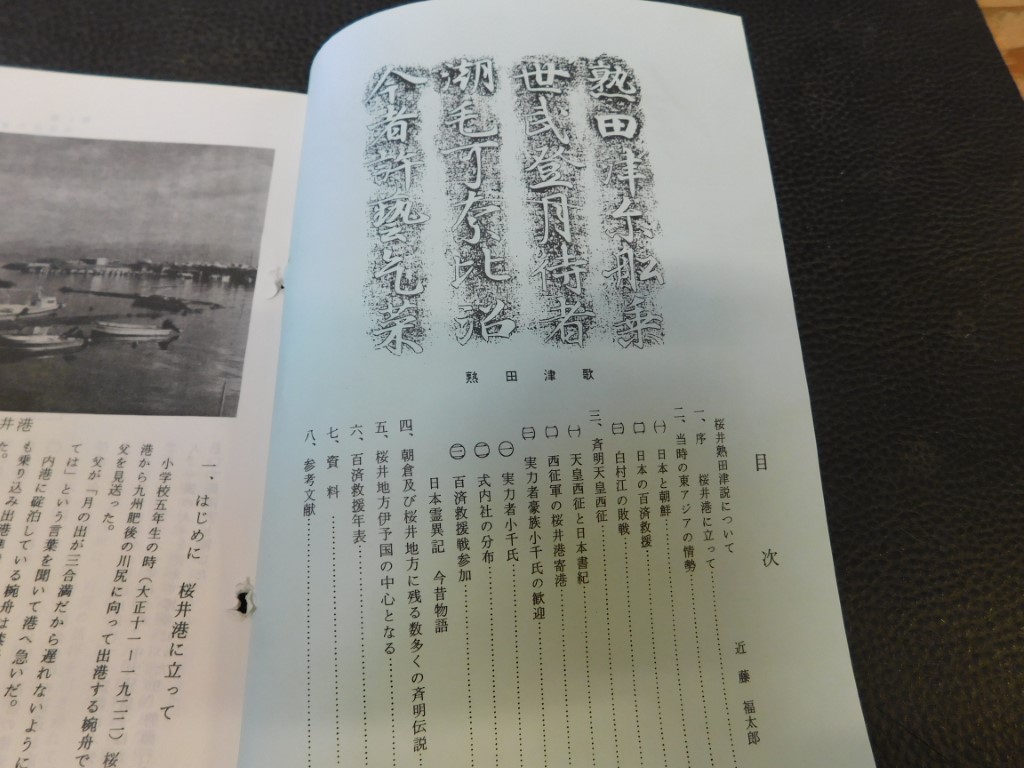 熟田津尓船乗
世武登月待者
潮毛可奈比沼
今者許藝乞菜
熟田津歌
目次
近藤福太郎
桜井熟田津説について
一、序 桜井港に立って
二、当時の東アジアの情勢
㈠ 日本と朝鮮
㈡ 日本の百済救援
㈢ 白村江の敗戦
三、斉明天皇西征
㈠ 天皇西征と日本書紀
㈡ 西征軍の桜井港寄港
㈢ 実力者豪族小千氏の歓迎
㈠ 実力者小千氏
㈡ 式内社の分布
㈡ 百済救援戦参加
日本霊異記 今昔物語
四、朝倉及び桜井地方に残る数多くの斉明伝説
五、桜井地方伊予国の中心となる
六、百済救援年表
七、資料
八、参考文献
一、はじめに 桜井港に立って
小学校五年生の時（大正十一ー一九二二）桜
港から九州肥後の川尻に向って出港する椀舟で
父を見送った。
父が「月の出が三合満だから遅れないように
ては」という言葉を聞いて港へ急いだ。
内港に碇泊している椀舟は
も乗り込み出港準
た。
井港